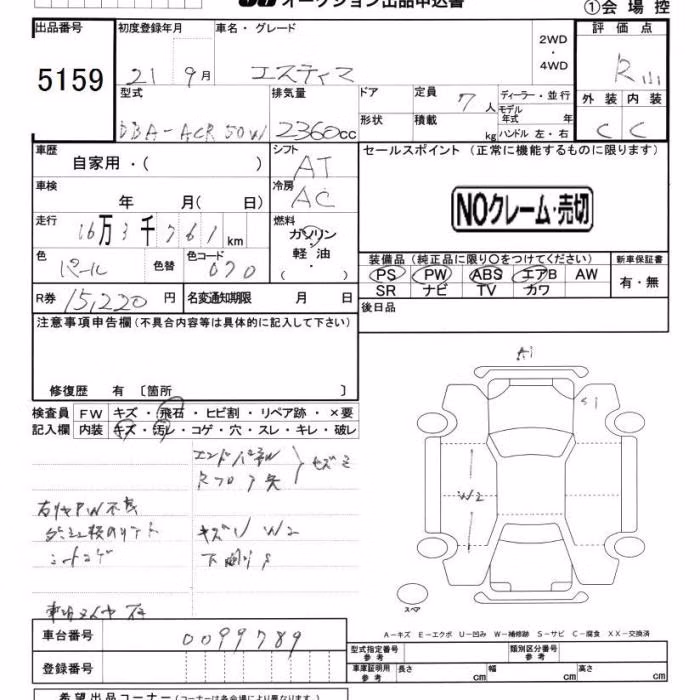 オークション出品申込書
①会場控
出品番号 初度登録年月 車名・グレード 評価点
5159 21年9月 エスティマ 2WD・4WD R
型式 排気量 ドア 定員 7人 ディーラー・並行
モデル年式 年 外装 内装
DBA-ACR50W 2360cc 形状 積載 kg ハンドル 左・右 C C
車歴 シフト セールスポイント (正常に機能するものに限ります)
自家用・( ) AT
車検 冷房
年 月( 日) AC NOクレーム・売切
走行 燃料
16万3千761km ガソリン・軽油・( )
色 色替 色コード 装備品 (純正品に限り○をつけてください) 新車保証書
パール 070 PS PW ABS エアB AW 有・無
SR ナビ TV カワ
R券 15,220円 名変通知期限 月 日 後日品
注意事項申告欄(不具合内容等は具体的に記入して下さい)
修復歴 有 〔箇所 〕
A1
S1
検査員 FW キズ・飛石・ヒビ割・リペア跡・×要
記入欄 内装 キズ・汚レ・コゲ・穴・スレ・キレ・破レ
W2
キズU W2
スペア
A－キズ E－エクボ U－凹み W－補修跡 S－サビ C－腐食 XX－交換済
車台番号 0099789 型式指定番号 参考 類別区分番号 参考
登録番号 車庫証明用 参考 長さ cm 幅 cm 高さ cm
希望出品コーナー(コーナーは各会場により異なります。)